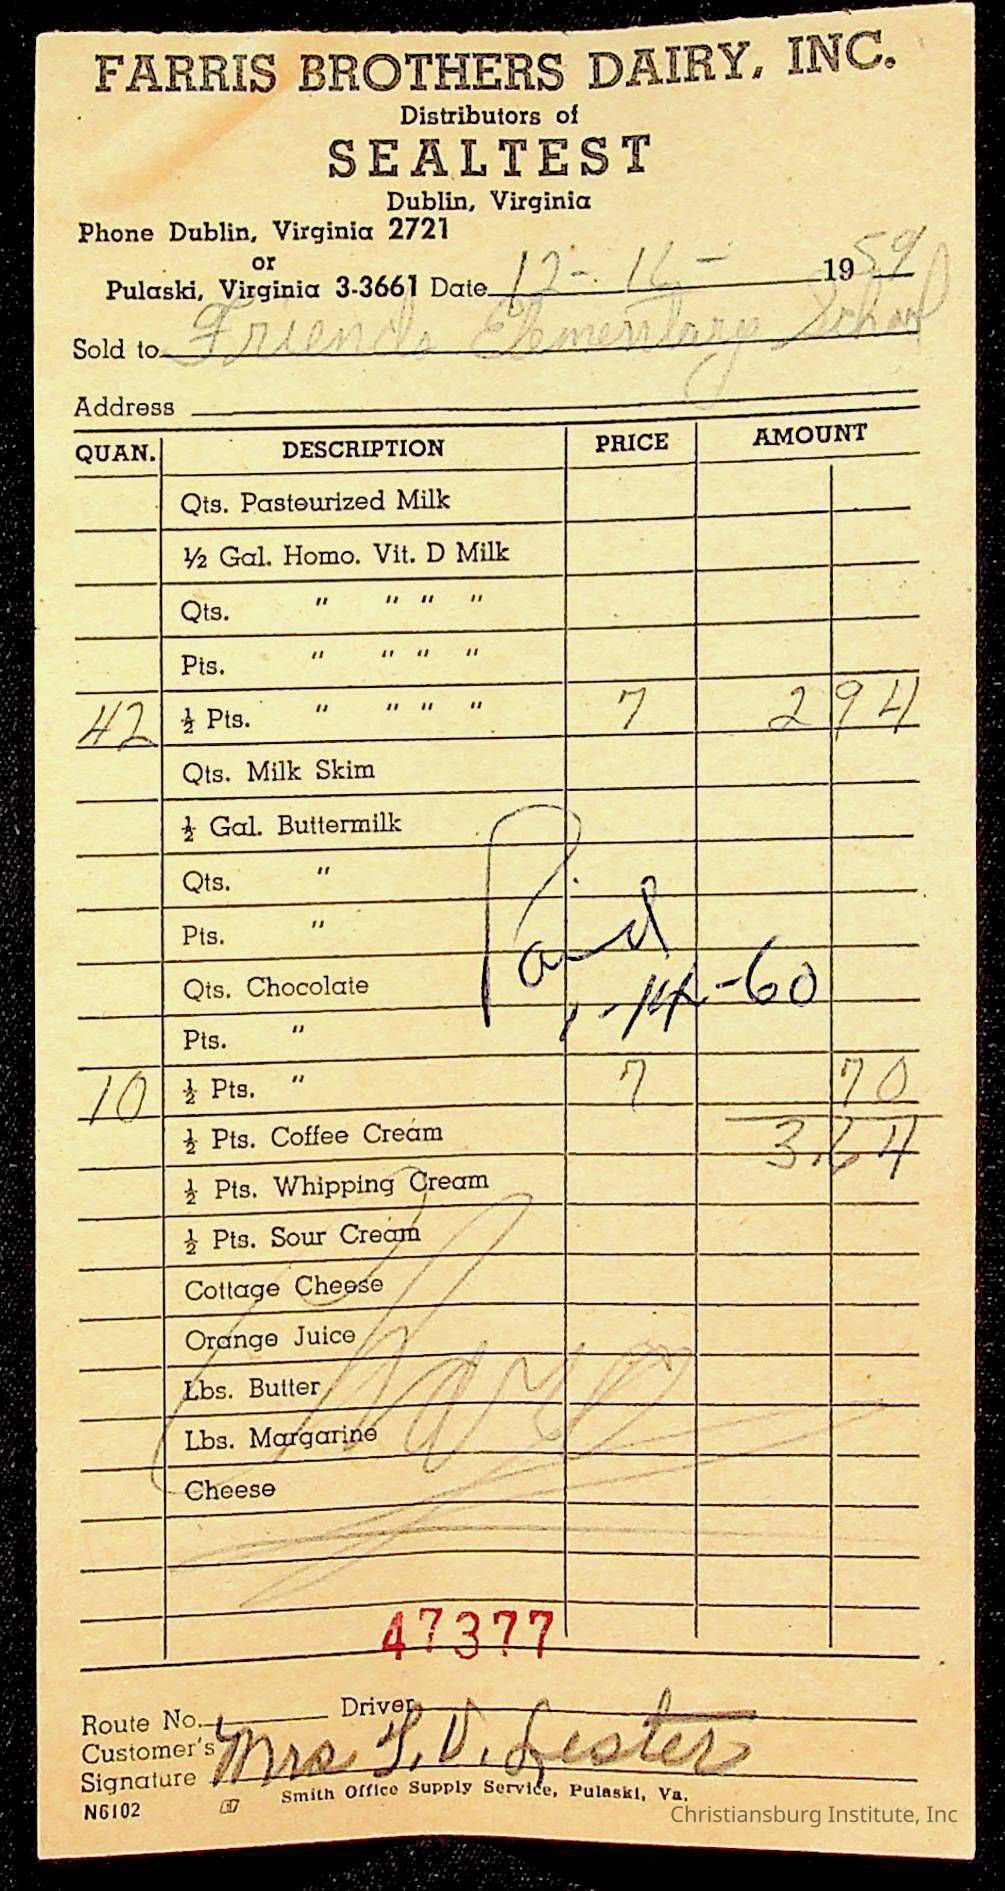 FARRIS BROTHERS DAIRY, INC.
Distributors of
SEALTEST
Dublin, Virginia
Phone Dublin, Virginia 2721
or
Pulaski, Virginia 3-3661 Date 12-16- 1959
Sold to Friends Elementary School
Address
QUAN. DESCRIPTION PRICE AMOUNT
Qts. Pasteurized Milk
½ Gal. Homo. Vit. D Milk
Qts. " " " "
Pts. " " " "
42 ½ Pts. " " " " 7 2 94
Qts. Milk Skim
½ Gal. Buttermilk
Qts. "
Pts. "
Paid
Qts. Chocolate
1-14-60
Pts. "
10 ½ Pts. " 7 70
½ Pts. Coffee Cream 3.64
½ Pts. Whipping Cream
½ Pts. Sour Cream
Cottage Cheese
Orange Juice
Lbs. Butter
Lbs. Margarine
Cheese
47377
Route No. Driver
Customer's
Signature Mrs. L. V. Lester
Smith Office Supply Service, Pulaski, Va.
N6102
Christiansburg Institute, Inc